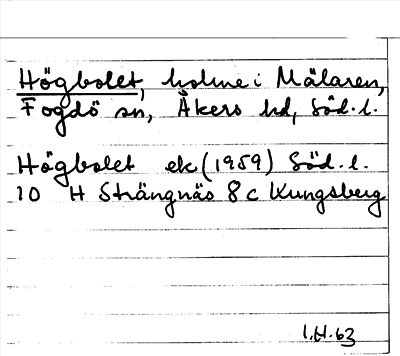 Högbolet, holme i Mälaren,
Fogdö sn, Åkers hd, Söd. l.
Högbolet ek (1959) Söd. l.
10 H Strängnäs 8 c Kungsberg
I.H. 63